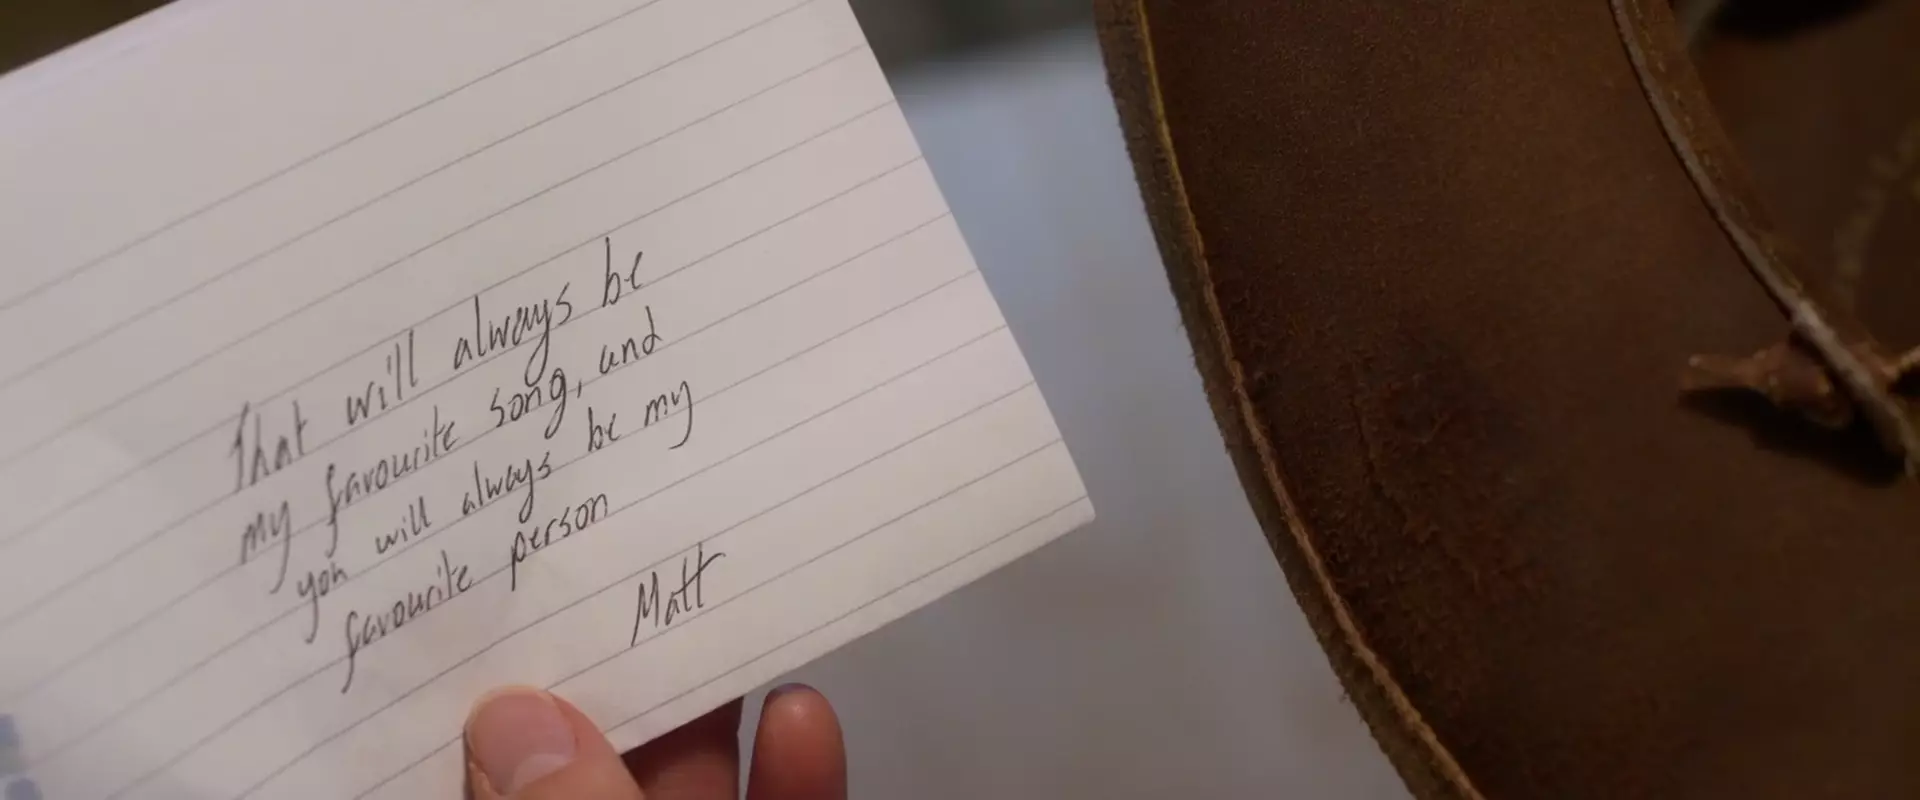 That will always be
my favourite song, and
you will always be my
favourite person
Matt